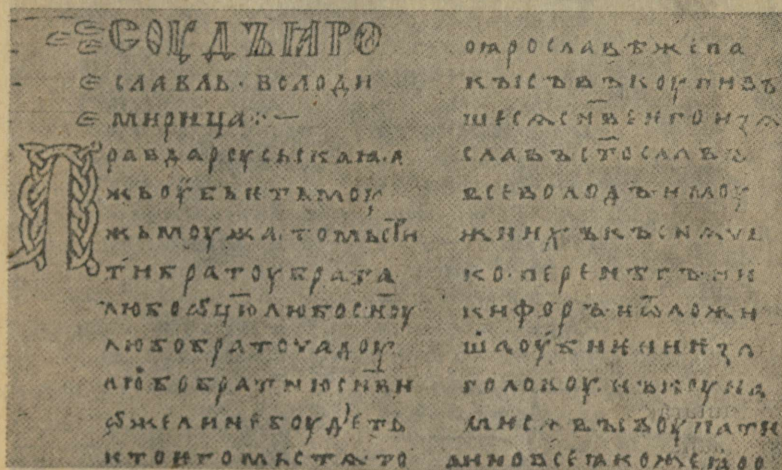 СОУДЪ ꙖРО
СЛАВЛЬ · ВОЛОДИ
МИРИЦА:·—
Правдароусьскаꙗ·а
жьоубьѥтьмоу
жьмоужа·томьсти
тибратоубрата
любоѿц҃ю любосн҃оу
любобратоучадоу
любобратнюсн҃ви
ѡжелинебоудеть
ктоѥгомьстѧ·то
оꙗрославѣжепа
кысъвъкоупивъ
шесѧсн҃веѥгоизѧ
славъст҃ославъ
всеволодъ·имоу
жиихъкъснѧчь
ко·перенѣгъ·ни
кифоръ·иѿложи
шаоубиѥниѥза
головоу·нъкоуна
мисѧвыкоупати
аиновсеꙗкожеꙗро